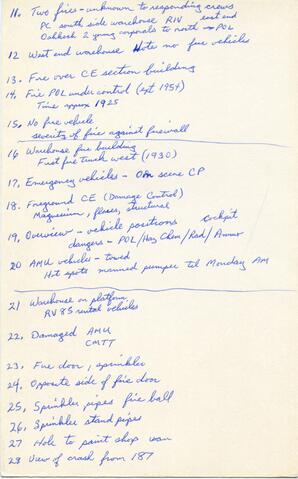 11. Two fires - unknown to responding crews
PC south side warehouse RIV east end
Oakleaf 2 young corporals to north - POL
12 West end warehouse Note no fire vehicles
13. Fire over CE section building
14. Fire POL under control (ext 1954)
Time approx 1925
15. No fire vehicle
severity of fire against firewall
16 Warehouse fire building
First fire truck west (1930)
17. Emergency vehicles - On scene CP
18. Foreground CE (Damage Control)
Magnesium, flares, structural
19. Overview - vehicle positions Cockpit
dangers - POL/Haz Chem/Rad/Ammo
20 AMU vehicles - towed
Hot spots manned pumper til Monday AM
21 Warehouse on platform
RV 85 rental vehicles
22. Damaged AMU
CMTT
23. Fire door, sprinkler
24. Opposite side of fire door
25. Sprinkler pipes fire ball
26. Sprinkler stand pipes
27 Hole to paint shop
28 View of crash from 187